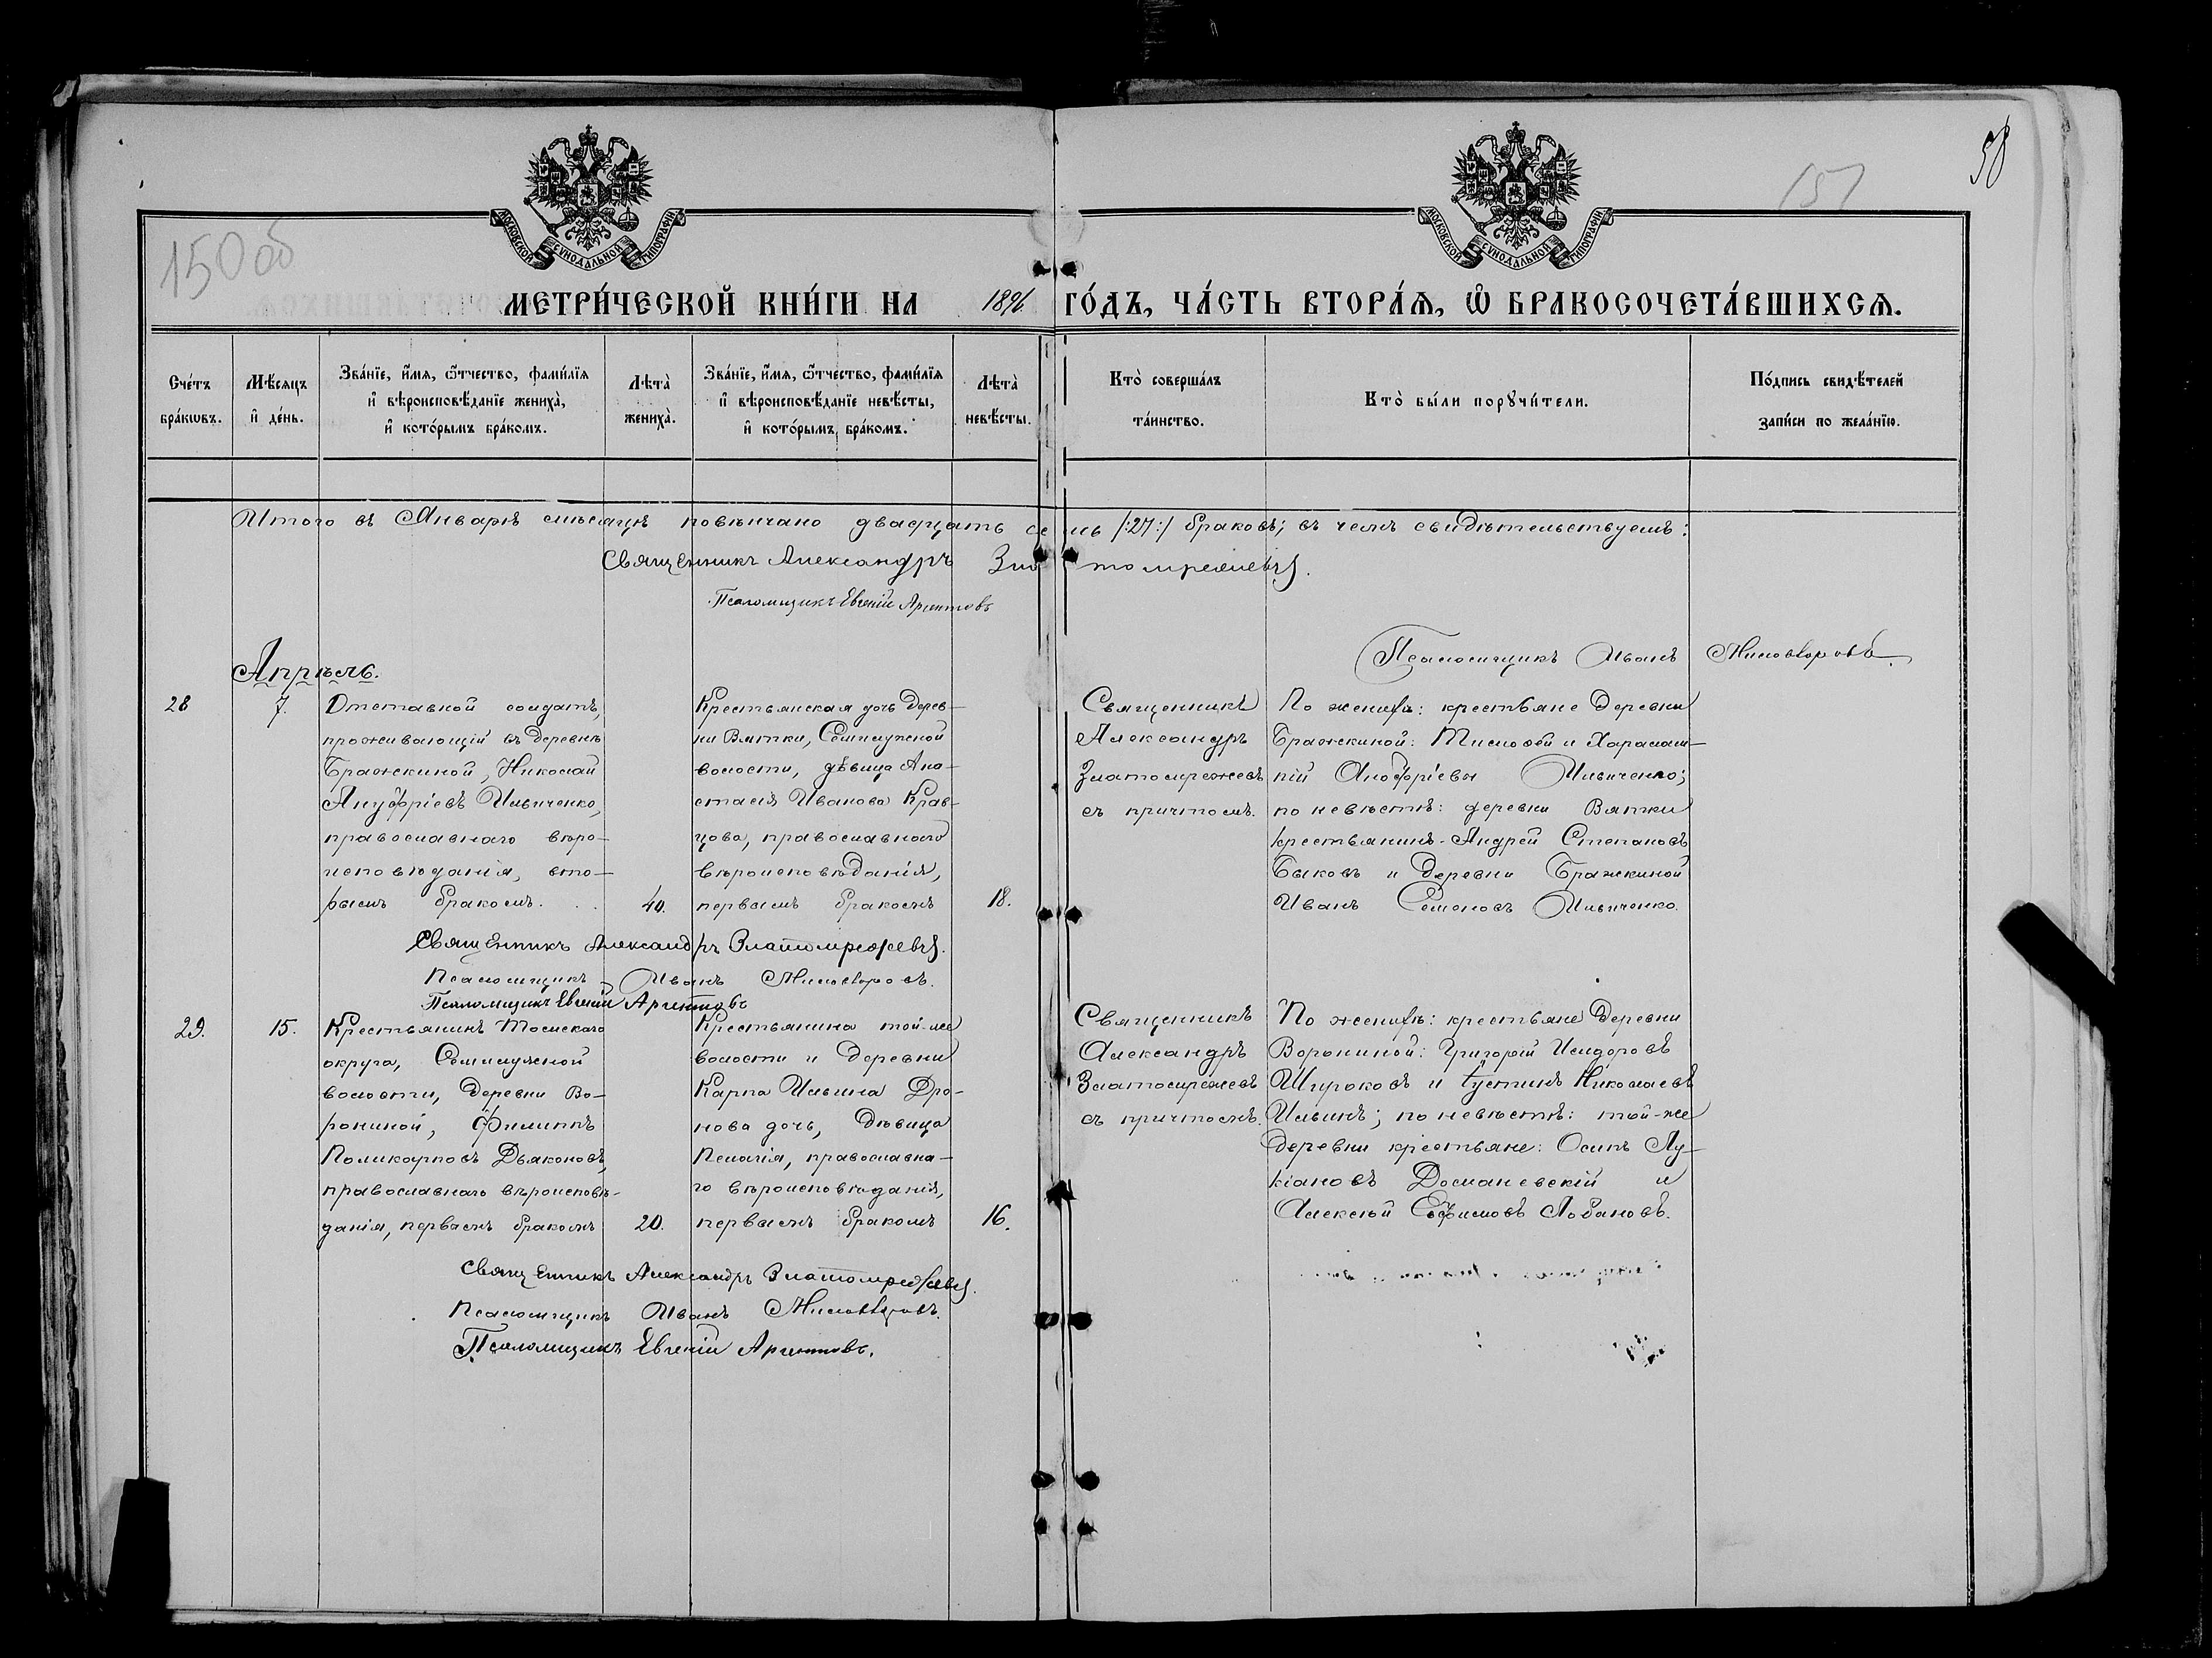 58
151
150 об
МОСКОВСКОЙ СУНОДАЛЬНОЙ ТИПОГРАФІИ
МОСКОВСКОЙ СУНОДАЛЬНОЙ ТИПОГРАФІИ
МЕТРИ́ЧЕСКОЙ КНИ́ГИ НА 1896 ГО́ДЪ, ЧА́СТЬ ВТОРА́Я, Ѽ БРАКОСОЧЕТА́ВШИХСЯ.
Сче́тъ
бра́кѡвъ.
Мѣ́сяцъ
и҆ де́нь.
Зва́нїе, и҆́мя, ѻ҆́тчество, фами́лїя
и҆ вѣроисповѣ́данїе жениха̀,
и҆ кото́рымъ бра́комъ.
Лѣта̀
жениха̀.
Зва́нїе, и҆́мя, ѻ҆́тчество, фами́лїя
и҆ вѣроисповѣ́данїе невѣ́сты,
и҆ кото́рымъ бра́комъ.
Лѣта̀
невѣ́сты.
Кто̀ соверша́лъ
та́инство.
Кто̀ бы́ли порꙋчи́тели.
По́дпись свидѣ́телей
запи́си по жела́нїю.
Итого въ Январѣ мѣсяцѣ повѣнчано двадцать семь /:27:/ браковъ; въ чемъ свидѣтельствуемъ:
Священникъ Александръ Златомрежевъ.
Псаломщикъ Евгеній Аргентовъ
Псаломщикъ Иванъ Миловзоровъ.
Апрѣль.
28
7.
Отставной солдатъ,
проживающій въ деревнѣ
Бражкиной, Николай
Ануфріевъ Ильиченко,
православнаго вѣро-
исповѣданія, вто-
рымъ бракомъ.
40.
Крестьянская дочь дерев-
ни Вятки, Семилужной
волости, дѣвица Ана-
стасія Иванова Крав-
цова, православнаго
вѣроисповѣданія,
первымъ бракомъ
18.
Священникъ
Александръ
Златомрежевъ
съ причтомъ.
По женихѣ: крестьяне деревни
Бражкиной: Тимофей и Харалам-
пій Анофріевы Ильиченко;
по невѣстѣ: деревни Вятки
крестьянинъ Андрей Степановъ
Быковъ и деревни Бражкиной
Иванъ Семеновъ Ильиченко.
Священникъ Александръ Златомрежевъ.
Псаломщикъ Иванъ Миловзоровъ.
Псаломщикъ Евгеній Аргентовъ
29.
15.
Крестьянинъ Томскаго
округа, Семилужной
волости, деревни Во-
рониной, Филиппъ
Поликарповъ Дьяконовъ,
православнаго вѣроисповѣ-
данія, первымъ бракомъ
20.
Крестьянина той-же
волости и деревни
Карпа Ильина Дро-
нова дочь, дѣвица
Пелагія, православна-
го вѣроисповѣданія,
первымъ бракомъ
16.
Священникъ
Александръ
Златомрежевъ
съ причтомъ.
По женихѣ: крестьяне деревни
Ворониной: Григорій Исидоровъ
Широковъ и Іустинъ Николаевъ
Ильинъ; по невѣстѣ: той-же
деревни крестьяне: Осипъ Лу-
кіановъ Досманевскій и
Алексѣй Ефимовъ Лобановъ.
Священникъ Александръ Златомрежевъ.
Псаломщикъ Иванъ Миловзоровъ.
Псаломщикъ Евгеній Аргентовъ.